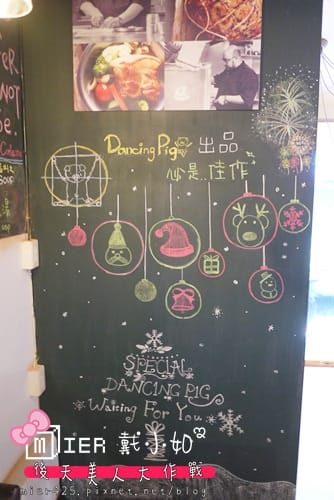 Dancing Pig 出品
必是..佳作
SPECIAL
DANCING PIG
Waiting For You
MIER 戴小如
後天美人大作戰
mier425.pixnet.net/blog